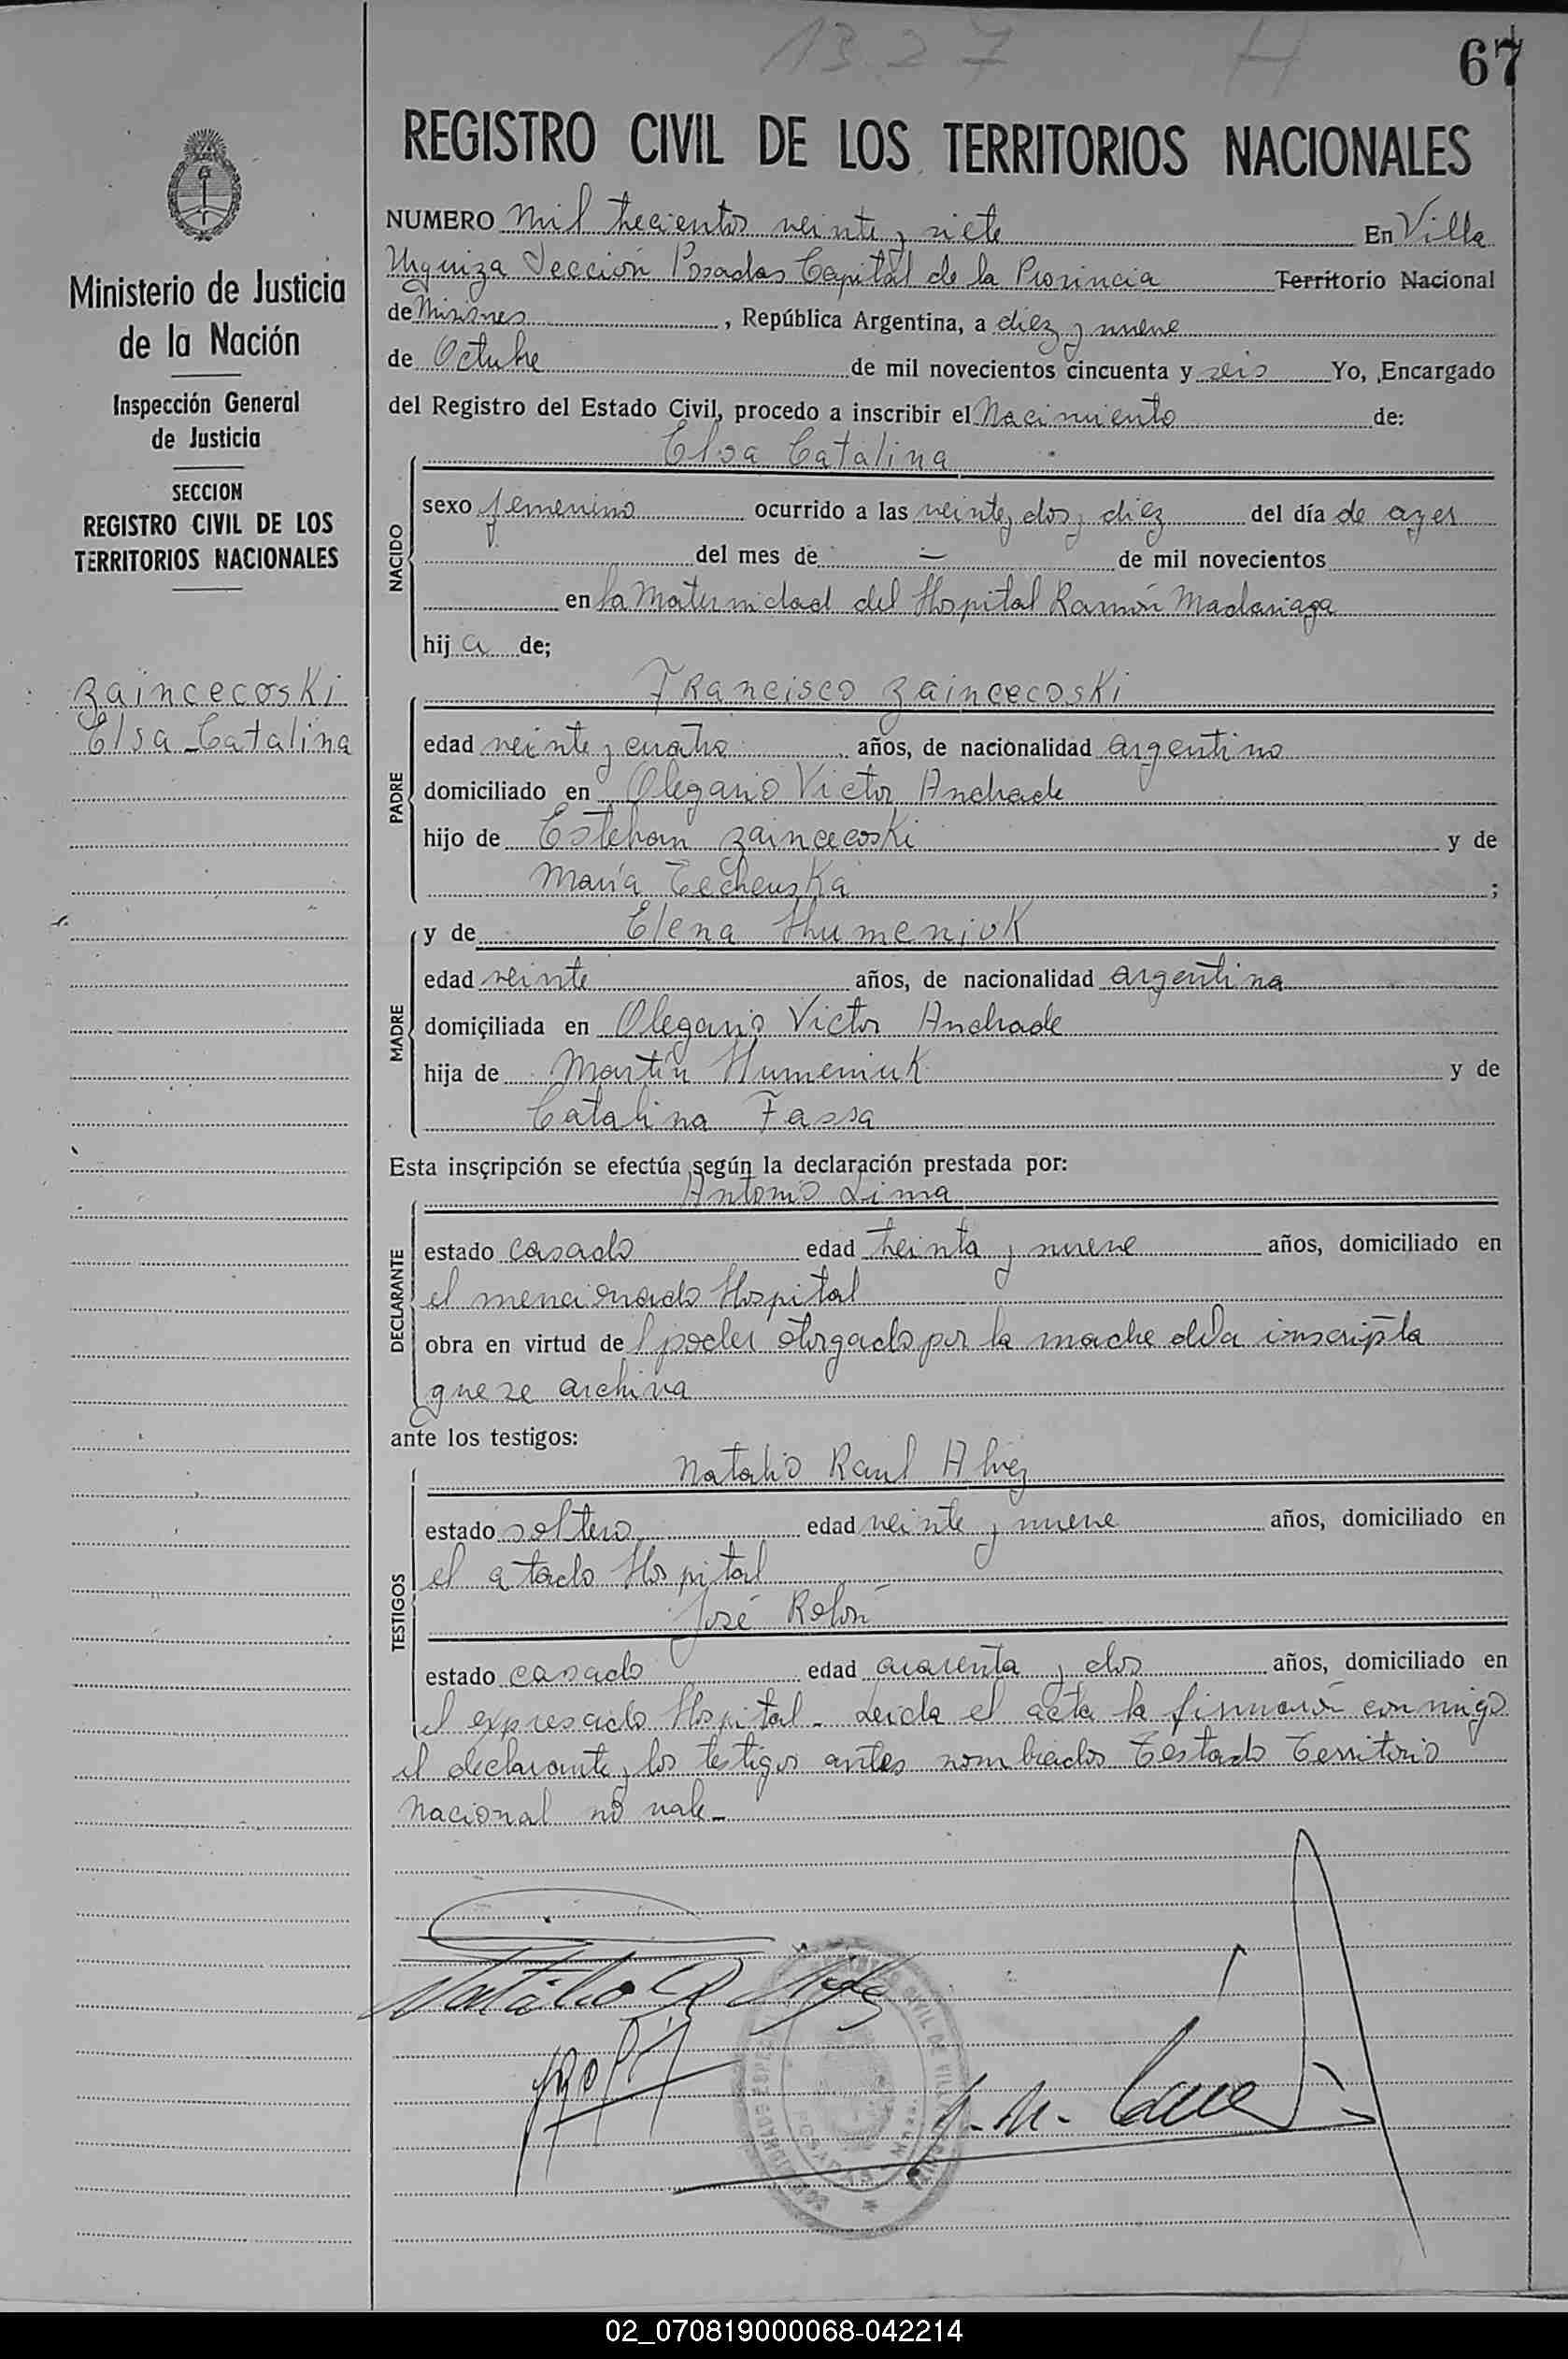 1327 H
67
REGISTRO CIVIL DE LOS TERRITORIOS NACIONALES
Ministerio de Justicia
de la Nación
Inspección General
de Justicia
SECCION
REGISTRO CIVIL DE LOS
TERRITORIOS NACIONALES
Zaincecoski
Elsa Catalina
NUMERO Mil trecientos veinte y siete En Villa
Urquiza Sección Posadas Capital de la Provincia Territorio Nacional
de Misiones, República Argentina, a diez y nueve
de Octubre de mil novecientos cincuenta y seis Yo, Encargado
del Registro del Estado Civil, procedo a inscribir el Nacimiento de:
NACIDO
Elsa Catalina
sexo femenino ocurrido a las veinte y dos y diez del día de ayer
del mes de — de mil novecientos
en la Maternidad del Hospital Ramón Madariaga
hij a de;
PADRE
Francisco Zaincecoski
edad veinte y cuatro años, de nacionalidad argentino
domiciliado en Olegario Victor Andrade
hijo de Esteban Zaincecoski y de
María Techenska;
MADRE
y de Elena Humeniuk
edad veinte años, de nacionalidad argentina
domiciliada en Olegario Victor Andrade
hija de Martín Humeniuk y de
Catalina Fassa
Esta inscripción se efectúa según la declaración prestada por:
DECLARANTE
Antonio Lima
estado casado edad treinta y nueve años, domiciliado en
el mencionado Hospital
obra en virtud de l poder otorgado por la madre de la inscripta
que se archiva
ante los testigos:
TESTIGOS
Natalio Raul Alvez
estado soltero edad veinte y nueve años, domiciliado en
el citado Hospital
José Rolón
estado casado edad cuarenta y dos años, domiciliado en
el expresado Hospital - Leida el acta la firmaron conmigo
el declarante y los testigos antes nombrados Testado Territorio
Nacional no vale -
Natalio R Alvez
02_070819000068-042214